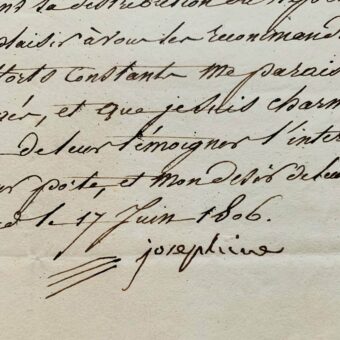 la distribution du
plaisir à vous les recommand
forts constants me parais
et que je suis charm
de leur témoigner l'inter
porte, et mon desir de leu
le 17 Juin 1806.
josephine